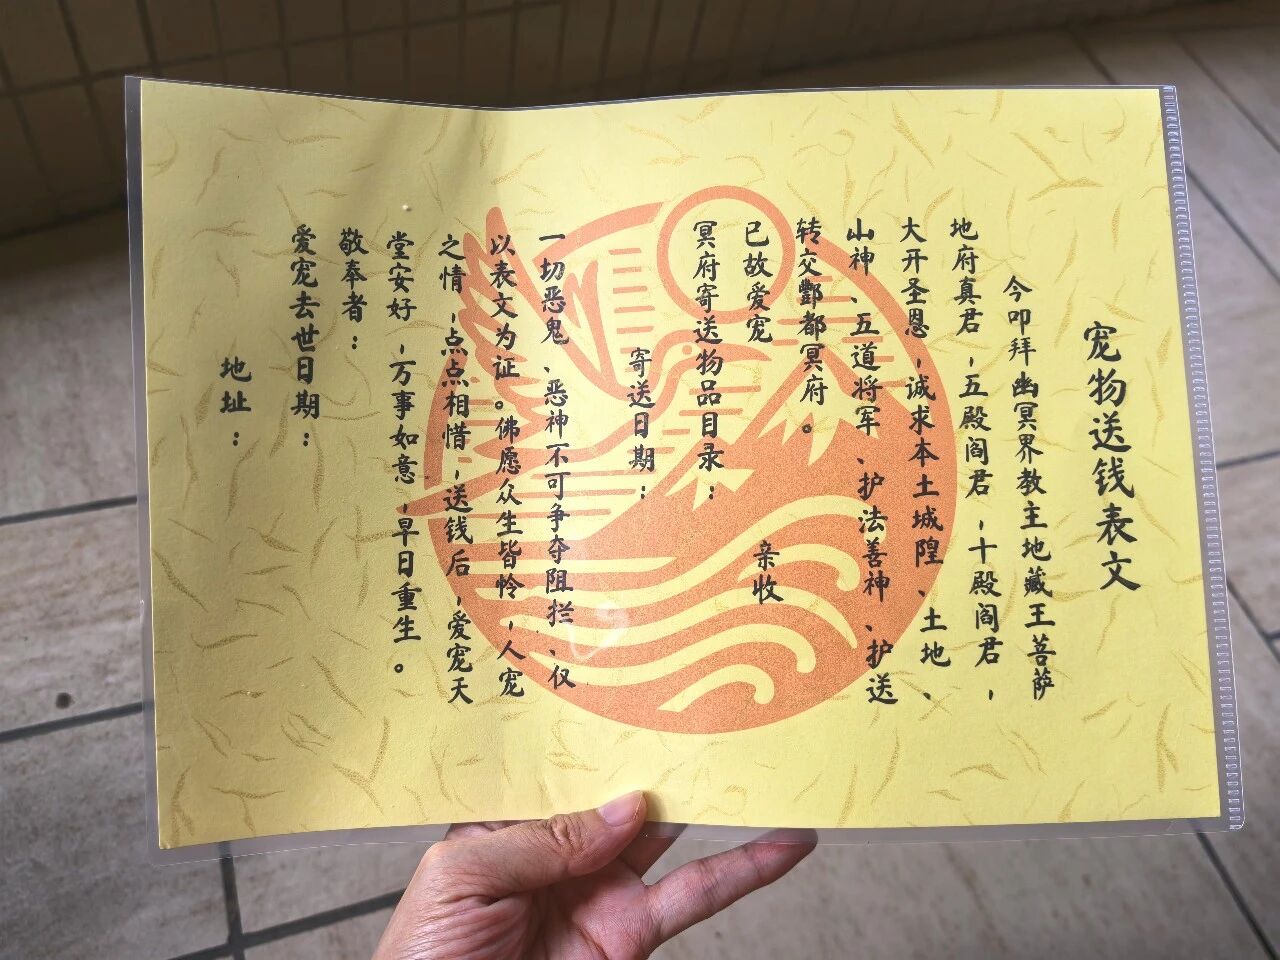 宠物送钱表文
今叩拜幽冥界教主地藏王菩萨
地府真君，五殿阎君，十殿阎君，
大开圣恩，诚求本土城隍、土地、
山神、五道将军、护法善神、护送
转交酆都冥府。
已故爱宠 亲收
冥府寄送物品目录：
寄送日期：
一切恶鬼、恶神不可争夺阻拦、仅
以表文为证。佛愿众生皆怜，人宠
之情，点点相惜，送钱后，爱宠天
堂安好，万事如意，早日重生。
敬奉者：
爱宠去世日期：
地址：